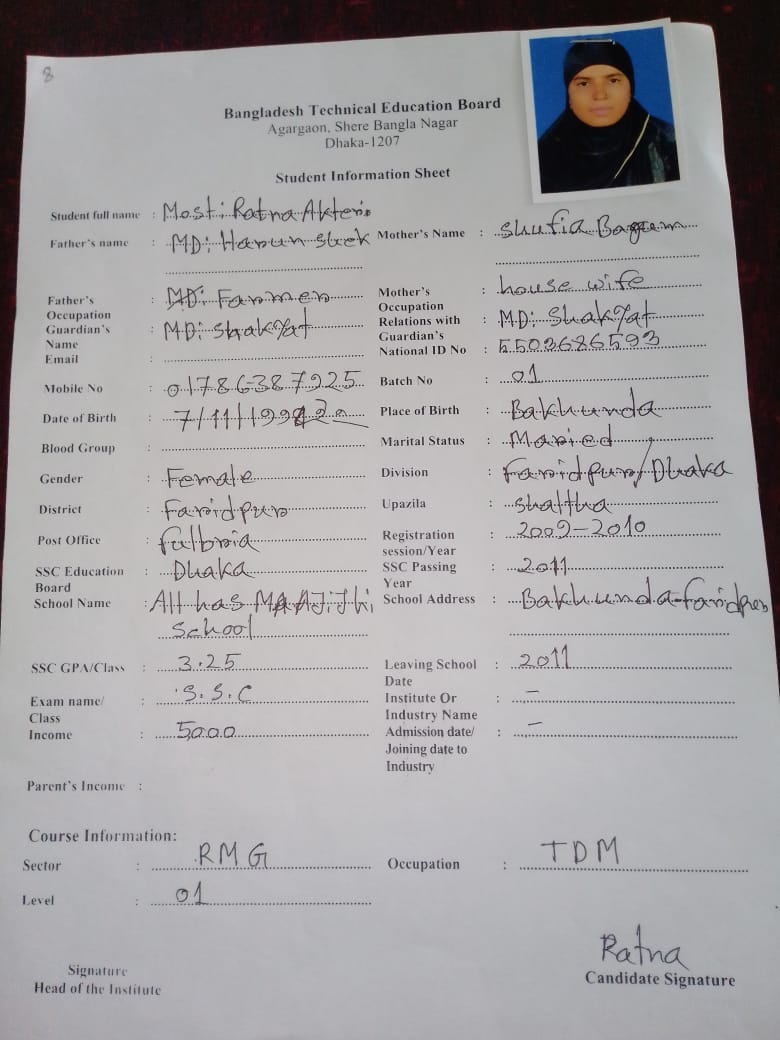 8
Bangladesh Technical Education Board
Agargaon, Shere Bangla Nagar
Dhaka-1207
Student Information Sheet
Student full name : Most: Ratna Akter
Father's name : MD: Harun Shek Mother's Name : Shufia Bagum
Father's Occupation : MD: Farmer Mother's Occupation : house wife
Guardian's Name : MD: Relations with Guardian's : MD:
Email : National ID No : 5503686593
Mobile No : Batch No : 01
Date of Birth : 7/11/ Place of Birth : Bakhunda
Blood Group : Marital Status : Maried
Gender : Female Division : Faridpur/Dhaka
District : Faridpur Upazila :
Post Office : fulbria Registration session/Year : 2009-2010
SSC Education Board : Dhaka SSC Passing Year : 2011
School Name : School School Address : Bakhunda-Faridpur
SSC GPA/Class : 3.25 Leaving School Date : 2011
Exam name/ Class : S.S.C Institute Or Industry Name : –
Income : 5000 Admission date/ Joining date to Industry : –
Parent's Income :
Course Information:
Sector : RMG Occupation : TDM
Level : 01
Ratna
Signature Candidate Signature
Head of the Institute